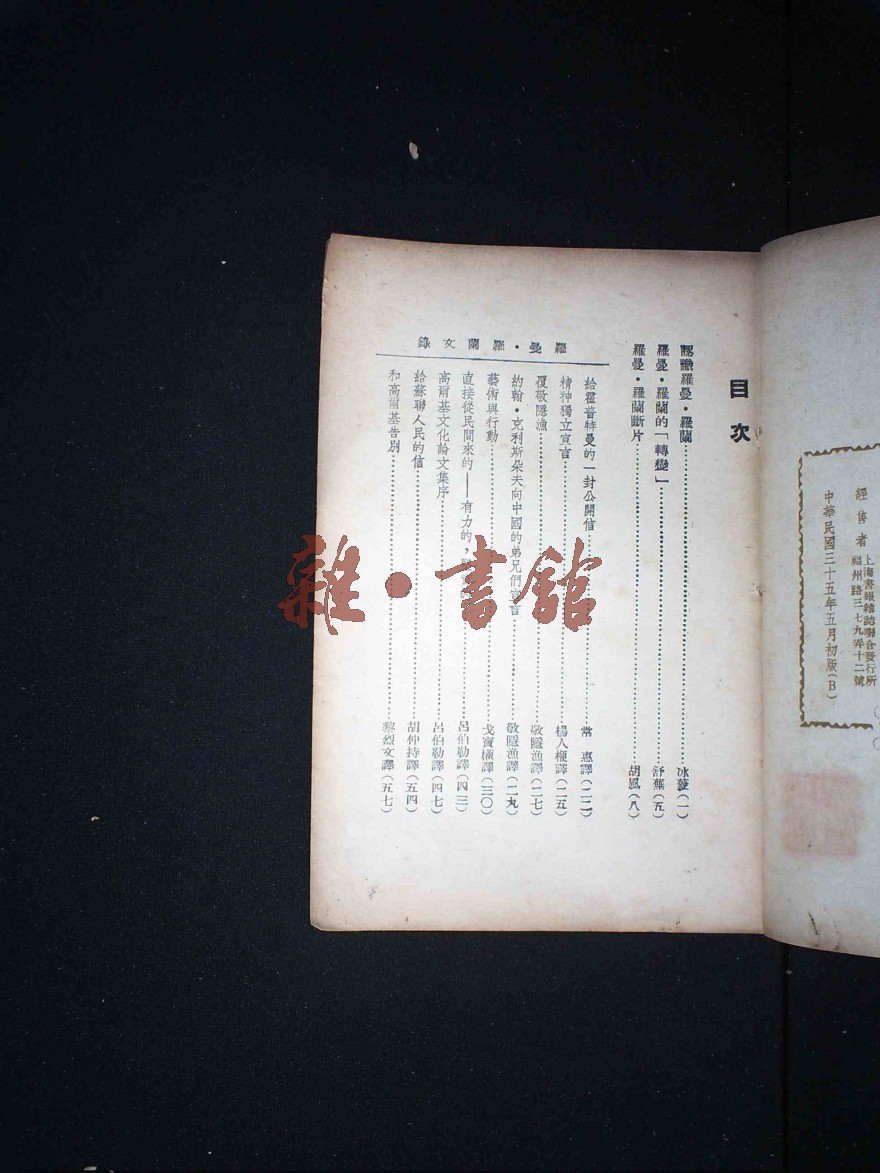 經售者
上海書報雜誌聯合發行所
福州路三七九弄十二號
中華民國三十五年五月初版(B)
目次
認識羅曼·羅蘭……冰菱(一)
羅曼·羅蘭的「轉變」……舒蕪(五)
羅曼·羅蘭斷片……胡風(八)
羅曼·羅蘭文錄
給霍普特曼的一封公開信……常 惠譯(二二)
精神獨立宣言……楊人楩譯(二五)
覆敬隱漁……敬隱漁譯(二七)
約翰·克利斯朵夫向中國的弟兄們宣言……敬隱漁譯(二九)
藝術與行動……戈寶權譯(三〇)
直接從民間來的——有力的,……呂伯勒譯(四三)
高爾基文化論文集序……呂伯勒譯(四七)
給蘇聯人民的信……胡仲持譯(五四)
和高爾基告別……黎烈文譯(五七)
雜·書館